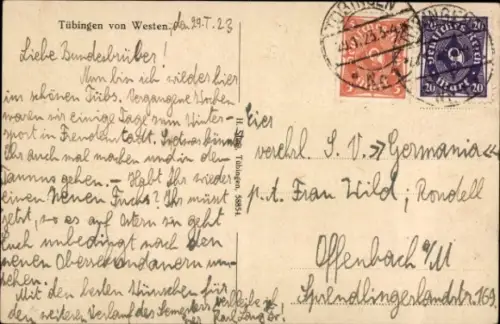 Tübingen von Westen. den 29.I.23
Liebe Bundesbrüder!
Nun bin ich wieder hier
im schönen Tübs. Vergangene Wochen
waren wir einige Tage zum Winter-
sport in Freudenstadt. Ihr
auch mal machen und in den
Taunus gehen. — Habt Ihr wieder
einen neuen Fuchs? Ihr müsst
jetzt, wo es auf Ostern zu geht
Euch unbedingt nach den
neuen Obersekundanern um-
sehen.
Mit den besten Wünschen für
den weiteren Verlauf des Semesters
verbleibe ich
Euer Karl
II. 5786 Tübingen. 58854
TÜBINGEN
29.1.23.3-4
Deutsches Reich
5
20 MARK 20
verehrl. S. V. »Germania«
p. A. Frau Wild, Rondell
Offenbach a/M
Sprendlingerlandstr. 169